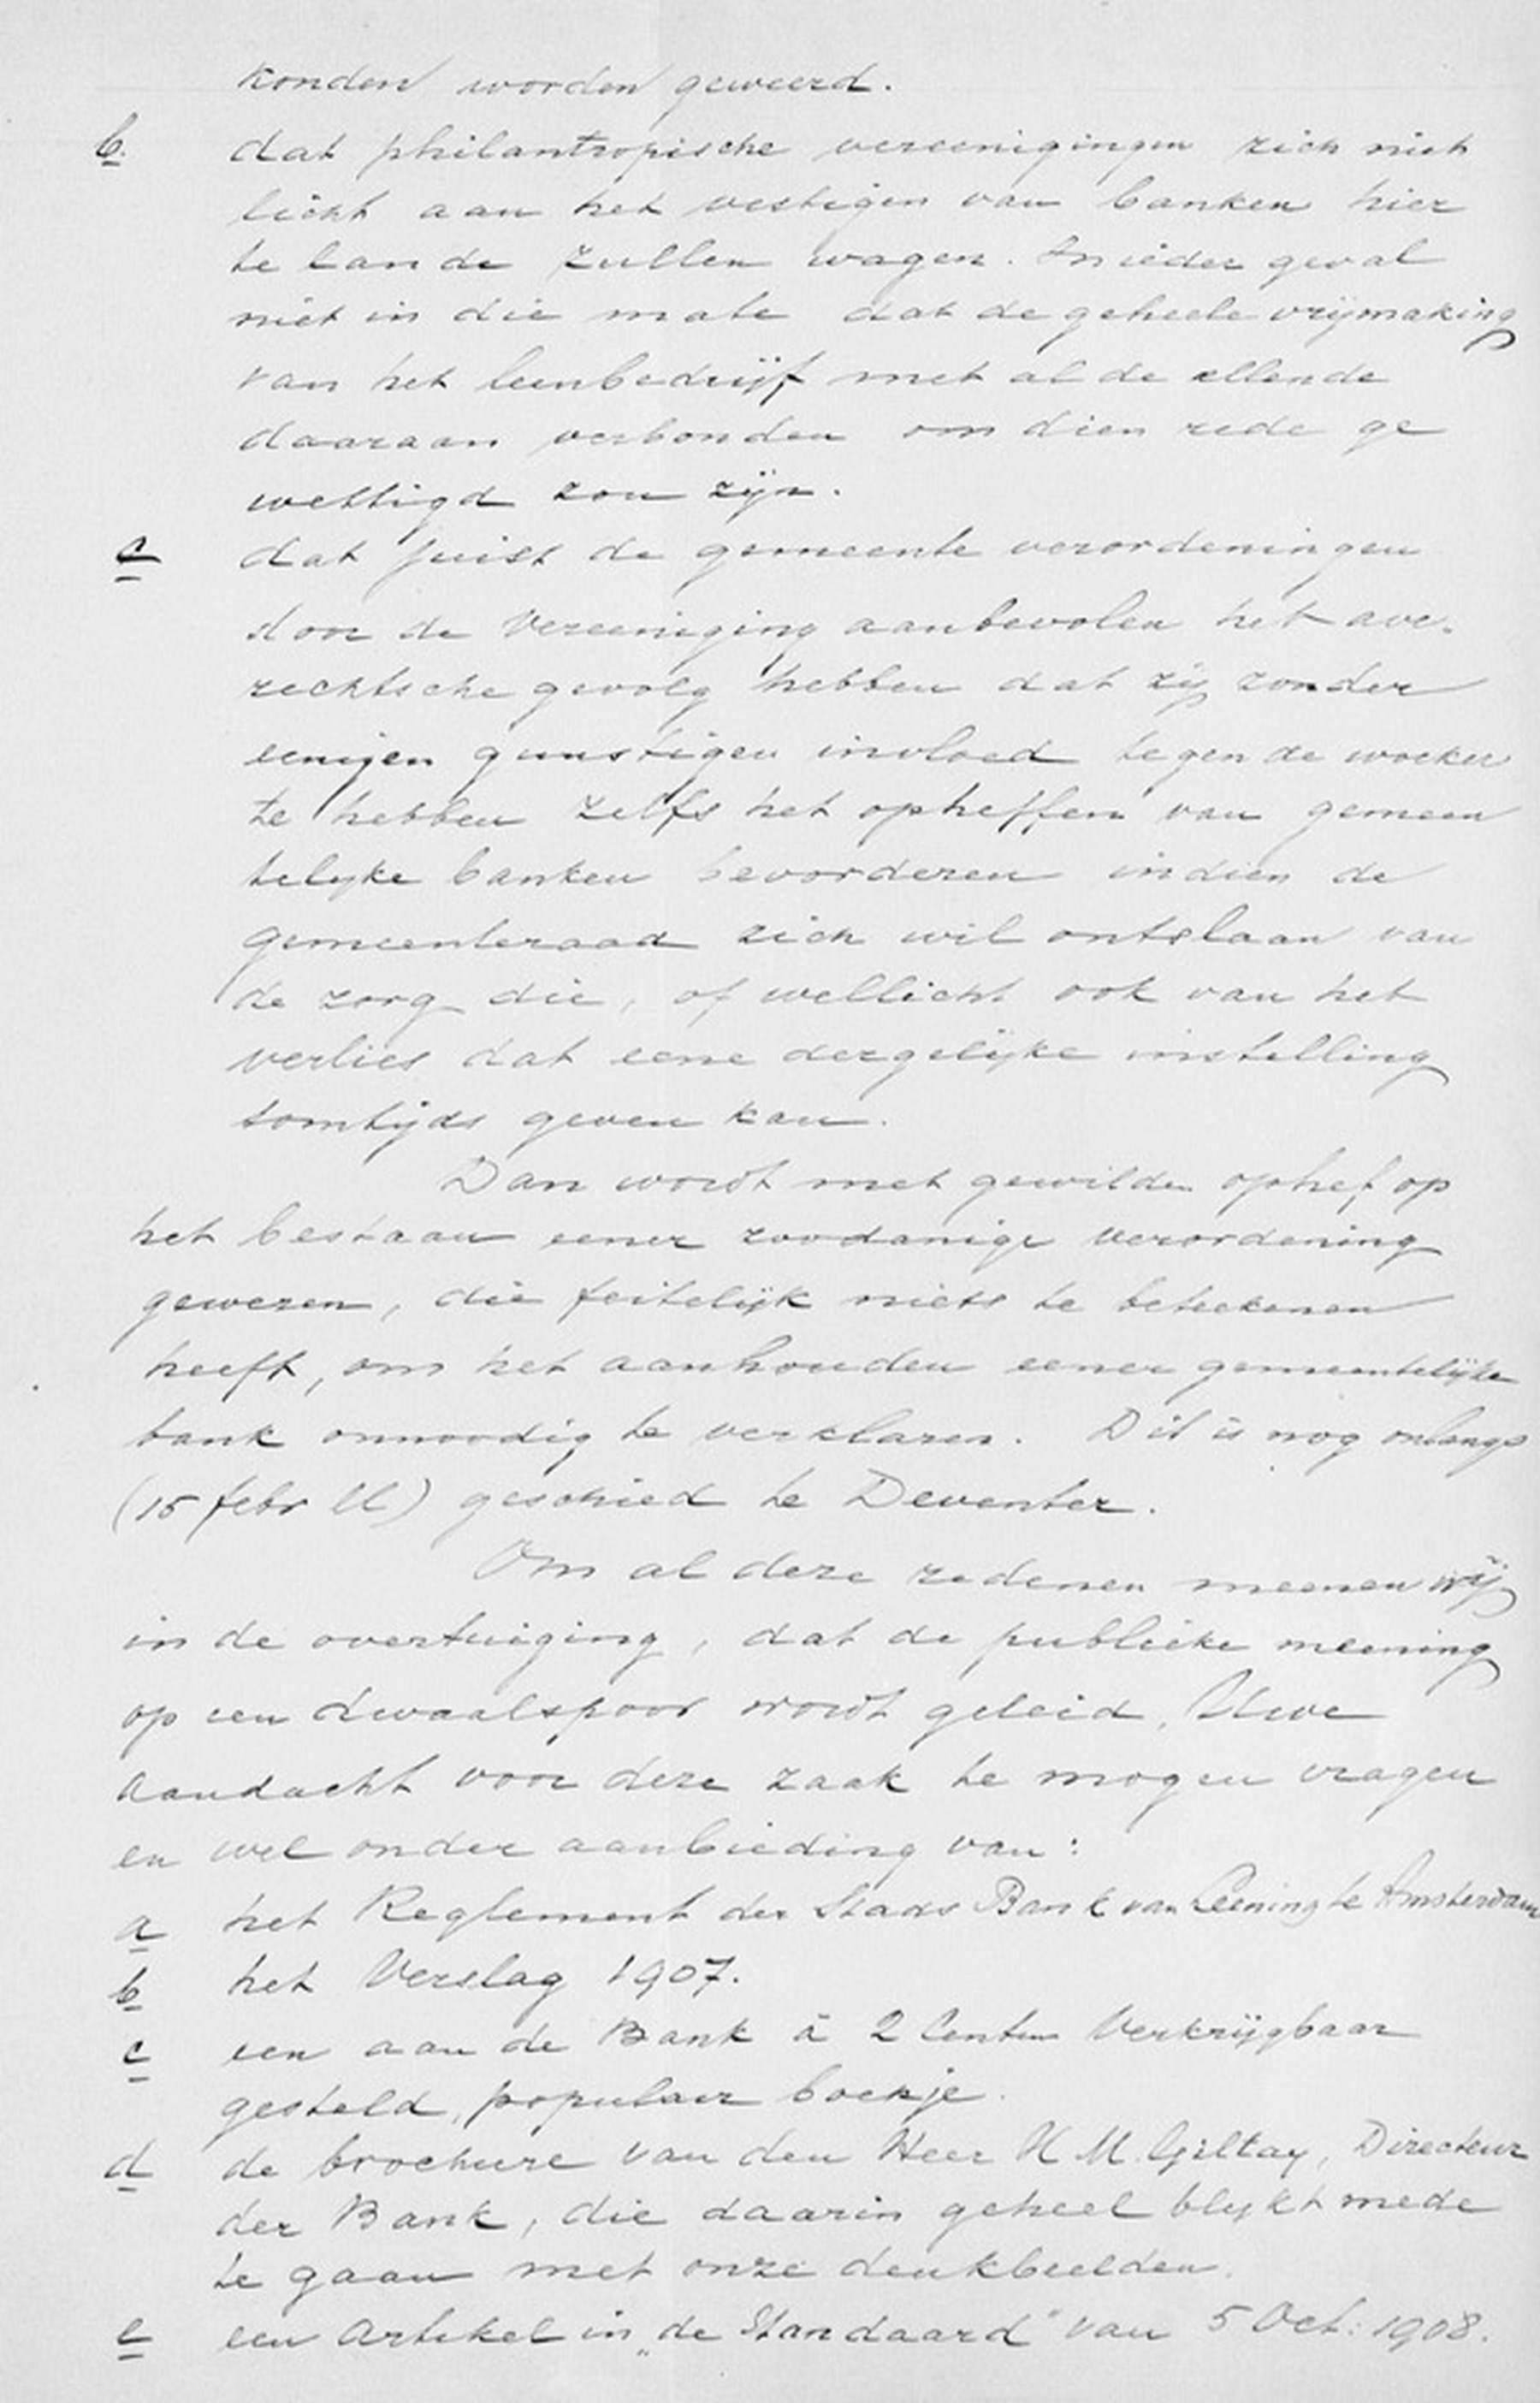 konden worden geweerd.
b. dat philantropische vereenigingen zich niet
licht aan het vestigen van banken hier
te lande zullen wagen. In ieder geval
niet in die mate dat de geheele vrijmaking
van het leenbedrijf met al de ellende
daaraan verbonden om dien rede ge
wettigd zou zijn.
c dat juist de gemeente verordeningen
door de Vereeniging aanbevolen het ave-
rechtsche gevolg hebben dat zij zonder
eenigen gunstigen invloed tegen de woeker
te hebben zelfs het opheffen van gemeen
telijke banken bevorderen indien de
gemeenteraad zich wil ontslaan van
de zorg die, of wellicht ook van het
verlies dat eene dergelijke instelling
somtijds geven kan.
Dan wordt met gewilden ophef op
het bestaan eener zoodanige verordening
gewezen, die feitelijk niets te beteekenen
heeft, om het aanhouden eener gemeentelijke
bank onnoodig te verklaren. Dit is nog onlangs
(15 febr ll) geschied te Deventer.
Om al deze redenen meenen wij
in de overtuiging, dat de publieke meening
op een dwaalspoor wordt geleid, Uwe
aandacht voor deze zaak te mogen vragen
en wel onder aanbieding van:
a het Reglement der Stads Bank van Leening te Amsterdam
b het Verslag 1907.
c een aan de Bank à 2 Centen Verkrijgbaar
gesteld, populair boekje.
d de brochure van den Heer H M. Giltay, Directeur
der Bank, die daarin geheel blijkt mede
te gaan met onze denkbeelden.
e een Artikel in „de Standaard" van 5 Oct: 1908.